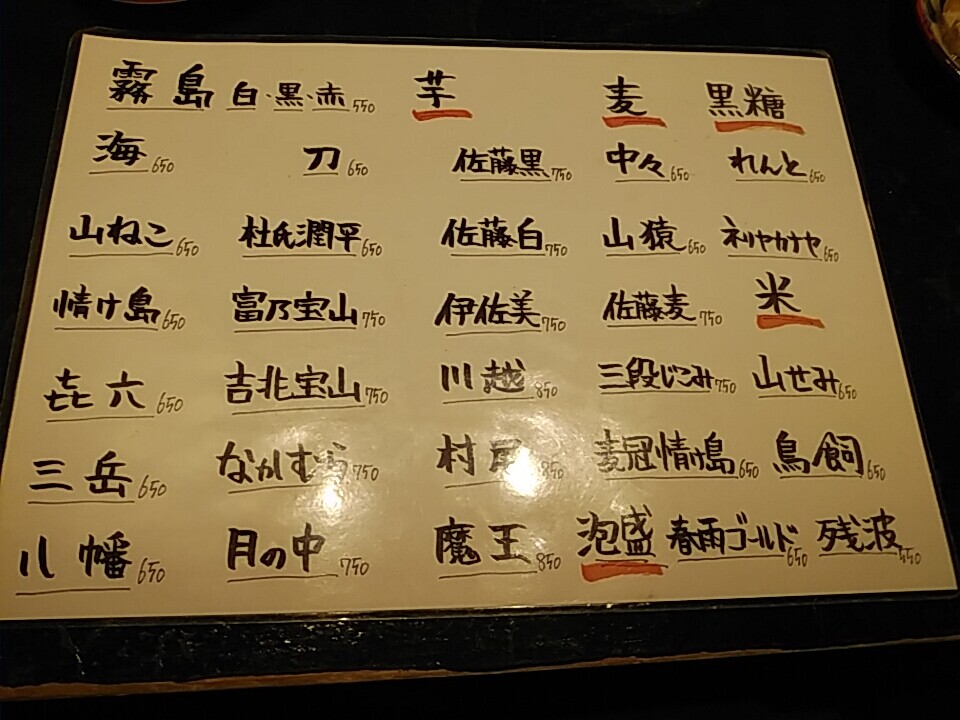 霧島 白・黒・赤 550 芋 麦 黒糖
海 650 刀 650 佐藤黒 750 中々 650 れんと 650
山ねこ 650 杜氏潤平 650 佐藤白 750 山猿 650 ネリヤカナヤ 650
情け島 650 富乃宝山 750 伊佐美 750 佐藤麦 750 米
㐂六 650 吉北宝山 750 川越 850 三段じこみ 750 山せみ 650
三岳 650 なかむら 750 村尾 850 麦冠情け島 650 鳥飼 650
八幡 650 月の中 750 魔王 850 泡盛 春雨ゴールド 650 残波 550